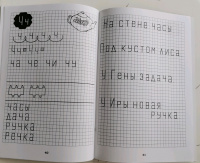 Чч
Чу=Чу=
ча че чи чу
часы
дача
ручка
речка
На стене часы
Под кустом лиса
У Гены задача
У Иры новая
ручка